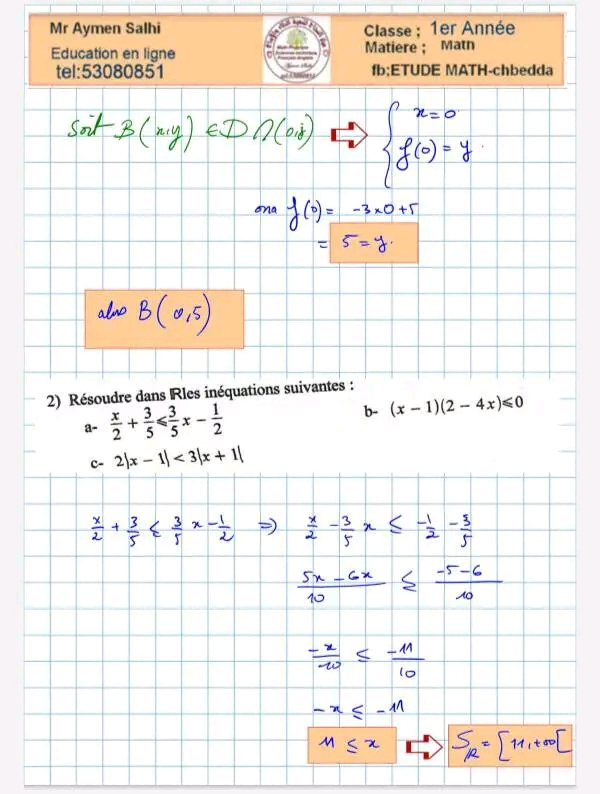 Mr Aymen Salhi
Education en ligne
tel:53080851
Classe ; 1er Année
Matiere ; Math
fb;ETUDE MATH-chbedda
Soit B(x,y) ∈ D ∩ (o,j) ⇨ { x = 0
f(0) = y .
ona f(0) = -3×0+5
= 5 = y.
alors B(0,5)
2) Résoudre dans IR les inéquations suivantes :
a- x/2 + 3/5 ⩽ 3/5 x − 1/2
b- (x − 1)(2 − 4x)⩽0
c- 2|x − 1| < 3|x + 1|
x/2 + 3/5 ≤ 3/5 x - 1/2 => x/2 - 3/5 x ≤ -1/2 - 3/5
5x - 6x/10 ≤ -5-6/10
-x/10 ≤ -11/10
-x ≤ -11
11 ≤ x ⇨ S_IR = [11,+∞[